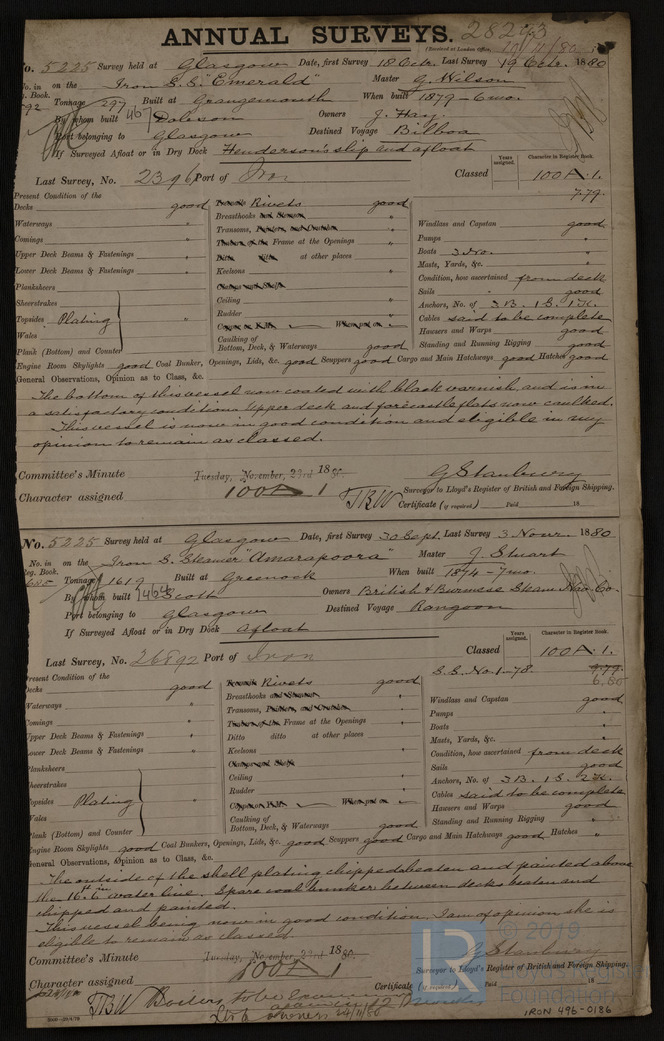 ANNUAL SURVEYS. 28293
(Received at London Office, 10/11/80
No. 5225 Survey held at Glasgow Date, first Survey 18 Octr. Last Survey 19 Octr. 1880
No. in on the Iron S.S. "Emerald" Master G. Wilson
Reg. Book. 592 Tonnage 297 Built at Grangemouth When built 1879 - 6 mo.
467 By whom built Dobson Owners J. Hay
Port belonging to Glasgow Destined Voyage Bilboa
If Surveyed Afloat or in Dry Dock Henderson's slip and afloat
Years assigned. Character in Register Book.
Last Survey, No. 2396 Port of Iron Classed 100 A.1.
7.79
Present Condition of the
Decks good Rivets good
Waterways " Breasthooks " Windlass and Capstan good
Comings " Transoms, " Pumps "
Upper Deck Beams & Fastenings " Frame at the Openings " Boats 3 No. "
Lower Deck Beams & Fastenings " at other places " Masts, Yards, &c. "
Planksheers Keelsons " Condition, how ascertained from deck
Sheerstrakes Sails good
Topsides Plating Ceiling " Anchors, No. of 3 B. 1 S. 1 K.
Wales Rudder " Cables said to be complete
Plank (Bottom) and Counter Caulking of Bottom, Deck, & Waterways good Hawsers and Warps good
Standing and Running Rigging good
Engine Room Skylights good Coal Bunker, Openings, Lids, &c. good Scuppers good Cargo and Main Hatchways good Hatches good
General Observations, Opinion as to Class, &c.
The bottom of this vessel now coated with black varnish and is in
a satisfactory condition. Upper deck and forecastle flats now caulked.
This vessel is now in good condition and eligible in my
opinion to remain as classed.
Committee's Minute Tuesday, November, 23rd 1880. G Stanbury
Character assigned 100A1 TBW Surveyor to Lloyd's Register of British and Foreign Shipping.
Certificate (if required) Paid 18
No. 5225 Survey held at Glasgow Date, first Survey 30 Sept. Last Survey 3 Novr. 1880
No. in on the Iron S. Steamer "Amarapoora" Master J. Stuart
Reg. Book. 685 Tonnage 1619 Built at Greenock When built 1874 - 7 mo.
1464 By whom built Scott Owners British & Burmese Steam Nav. Co.
Port belonging to Glasgow Destined Voyage Rangoon
If Surveyed Afloat or in Dry Dock Afloat
Years assigned. Character in Register Book.
Last Survey, No. 26892 Port of Iron Classed 100 A.1.
S.S. No. 1-78 9.79
6.80
Present Condition of the
Decks good Rivets good
Waterways " Breasthooks " Windlass and Capstan good
Comings " Transoms, " Pumps "
Upper Deck Beams & Fastenings " Frame at the Openings " Boats "
Lower Deck Beams & Fastenings " Ditto ditto at other places " Masts, Yards, &c. "
Planksheers Keelsons " Condition, how ascertained from deck
Sheerstrakes Sails good
Topsides Plating Ceiling " Anchors, No. of 3 B. 1 S. 2 K.
Wales Rudder " Cables said to be complete
Plank (Bottom) and Counter Caulking of Bottom, Deck, & Waterways good Hawsers and Warps good
Standing and Running Rigging "
Engine Room Skylights good Coal Bunkers, Openings, Lids, &c. good Scuppers good Cargo and Main Hatchways good Hatches "
General Observations, Opinion as to Class, &c.
The outside of the shell plating chipped beaten and painted above
the 16 ft. 6 in water line. Spare coal bunker between decks beaten and
chipped and painted.
This vessel being now in good condition, I am of opinion she is
eligible to remain as classed
Committee's Minute Tuesday, November 23rd 1880 G Stanbury
Character assigned 100A1 Surveyor to Lloyd's Register of British and Foreign Shipping.
Certificate (if required) Paid 18
TBW Boilers to be examined again in 12 months
owners 24/11/80
© 2019
Lloyd's Register
Foundation
IRON 496-0186